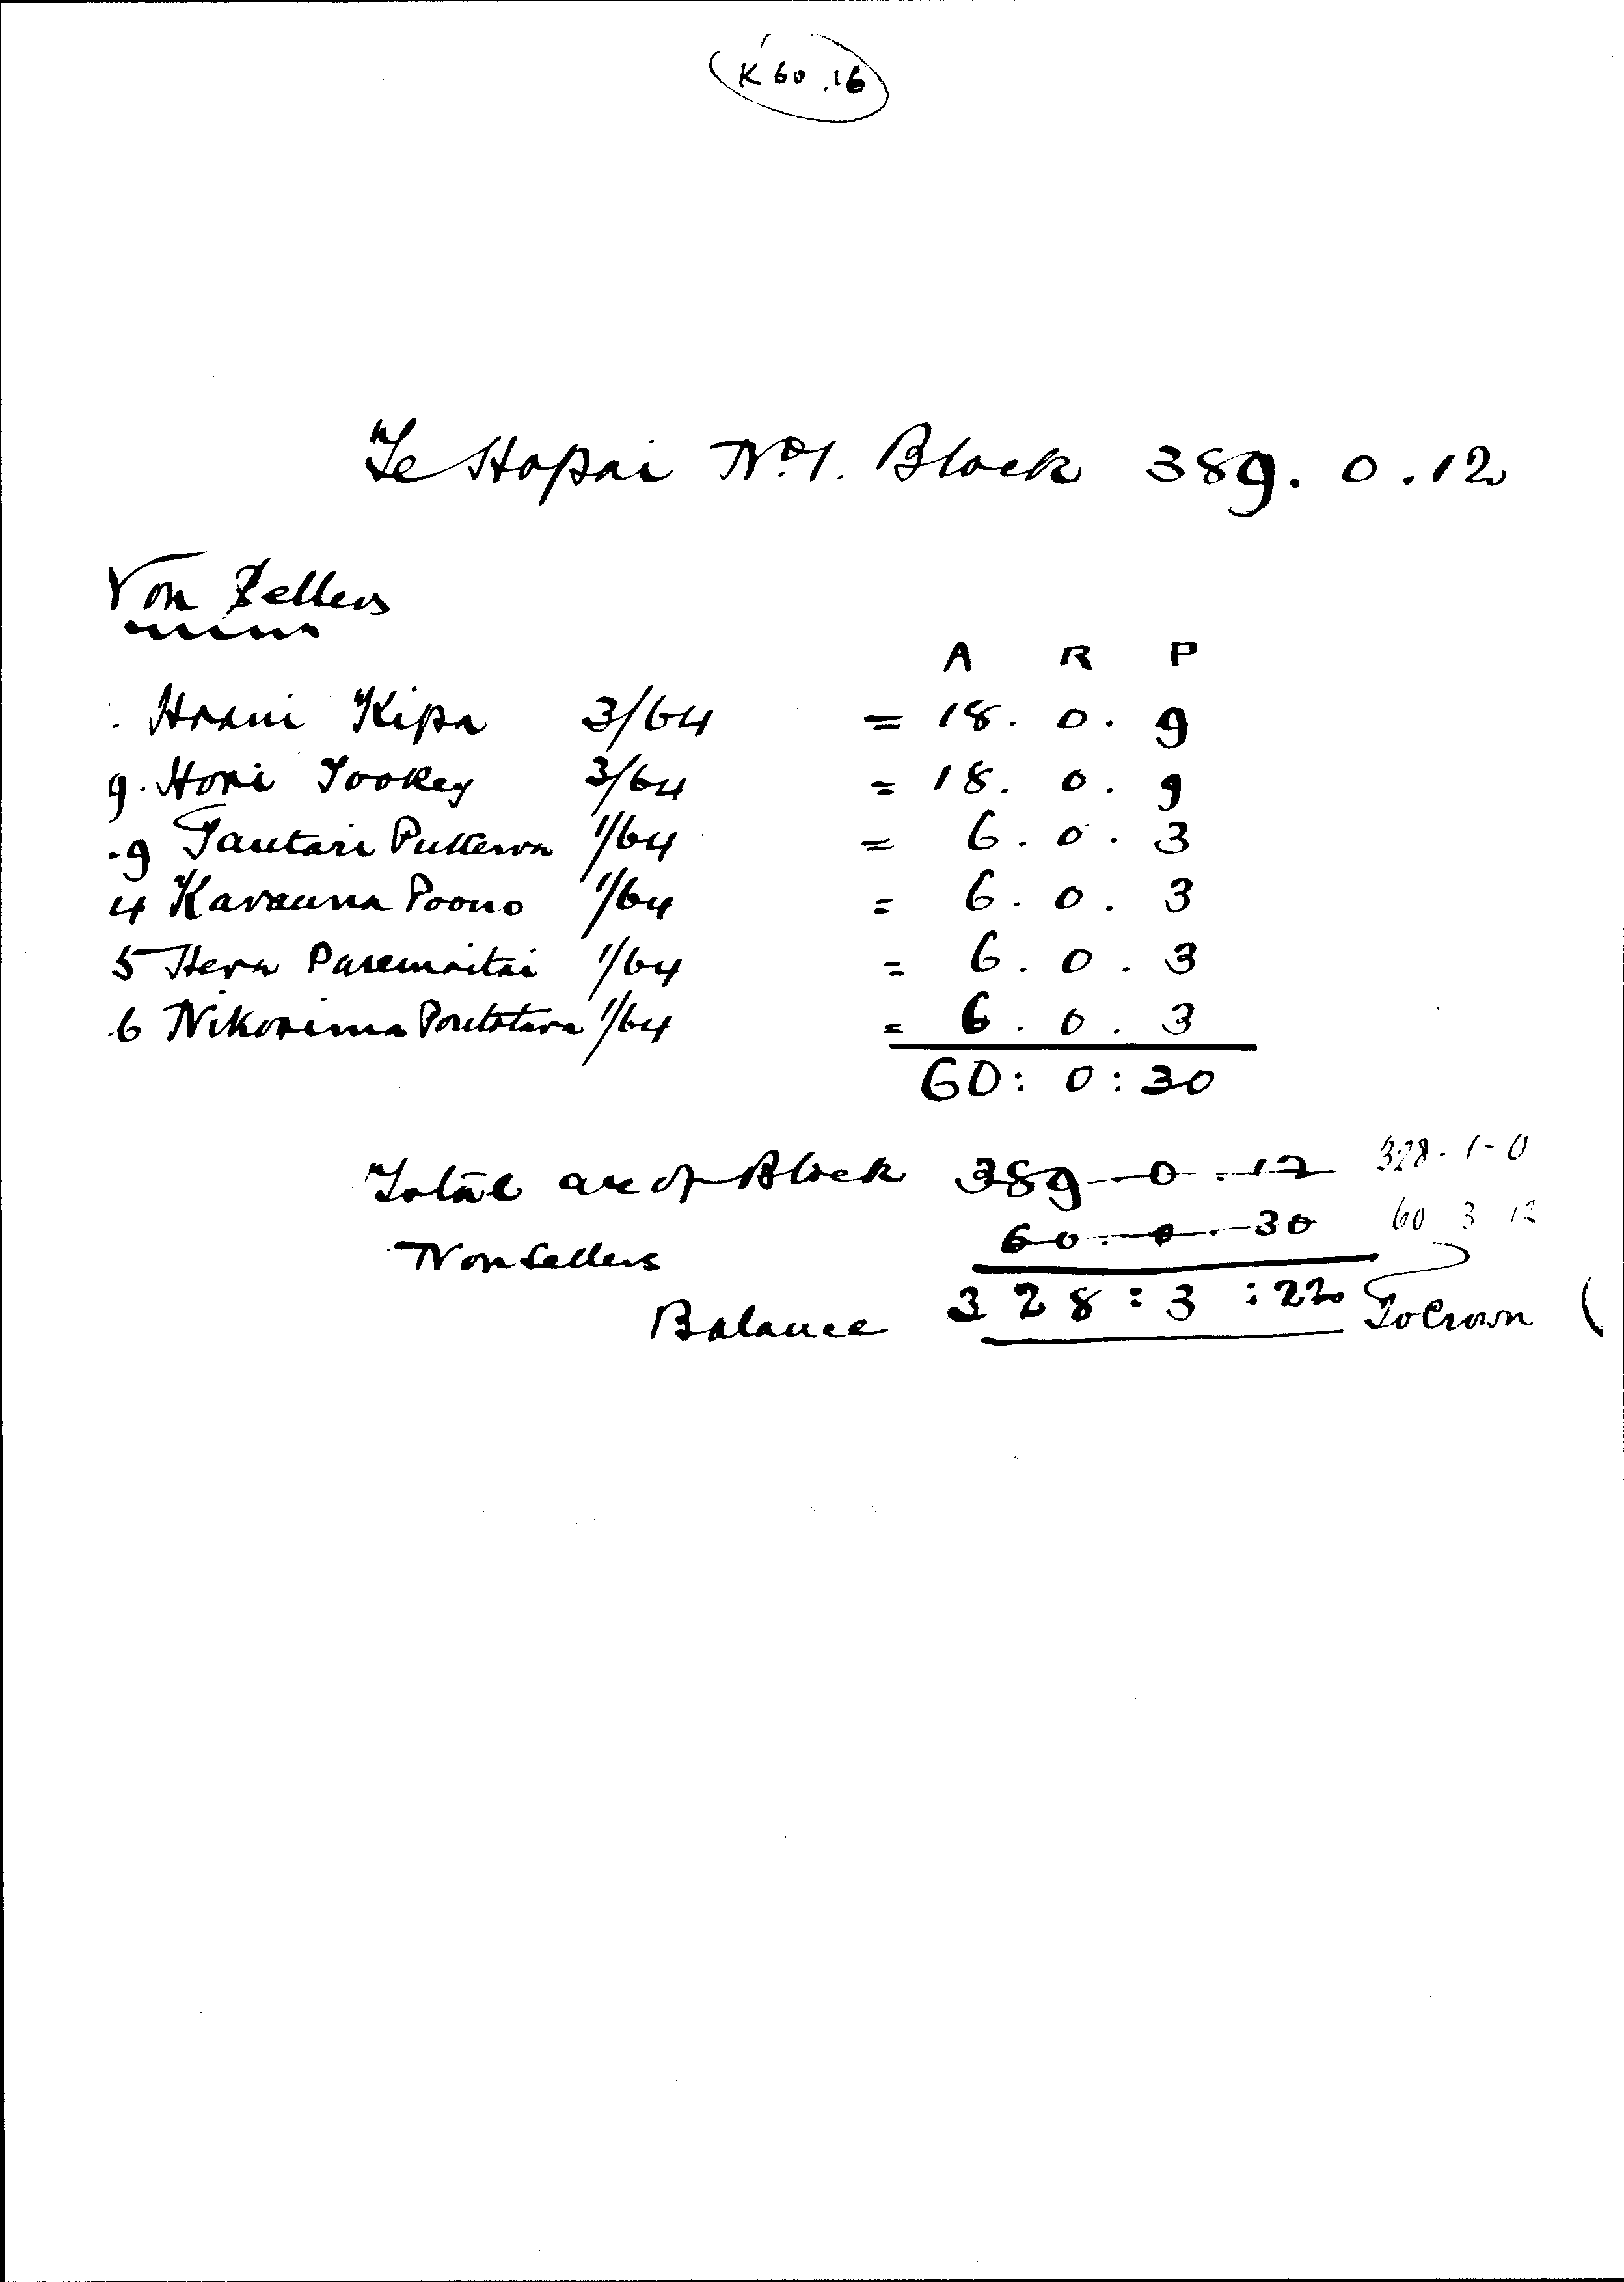 K 60.16
Te Hapai No 1. Block 389. 0. 12
Non Sellers
A R P
Kipa 3/64 = 18. 0. 9
Hori Tookey 3/64 = 18. 0. 9
Tautari 1/64 = 6. 0. 3
4 Karauna Poono 1/64 = 6. 0. 3
5 Hera Paremaitai 1/64 = 6. 0. 3
6 Nikorima 1/64 = 6. 0. 3
60: 0: 30
Total are of Block 389. 0: 12 328-1-0
Non Sellers 60. 0. 30 60 3 12
Balance 328: 3: 22 To Crown